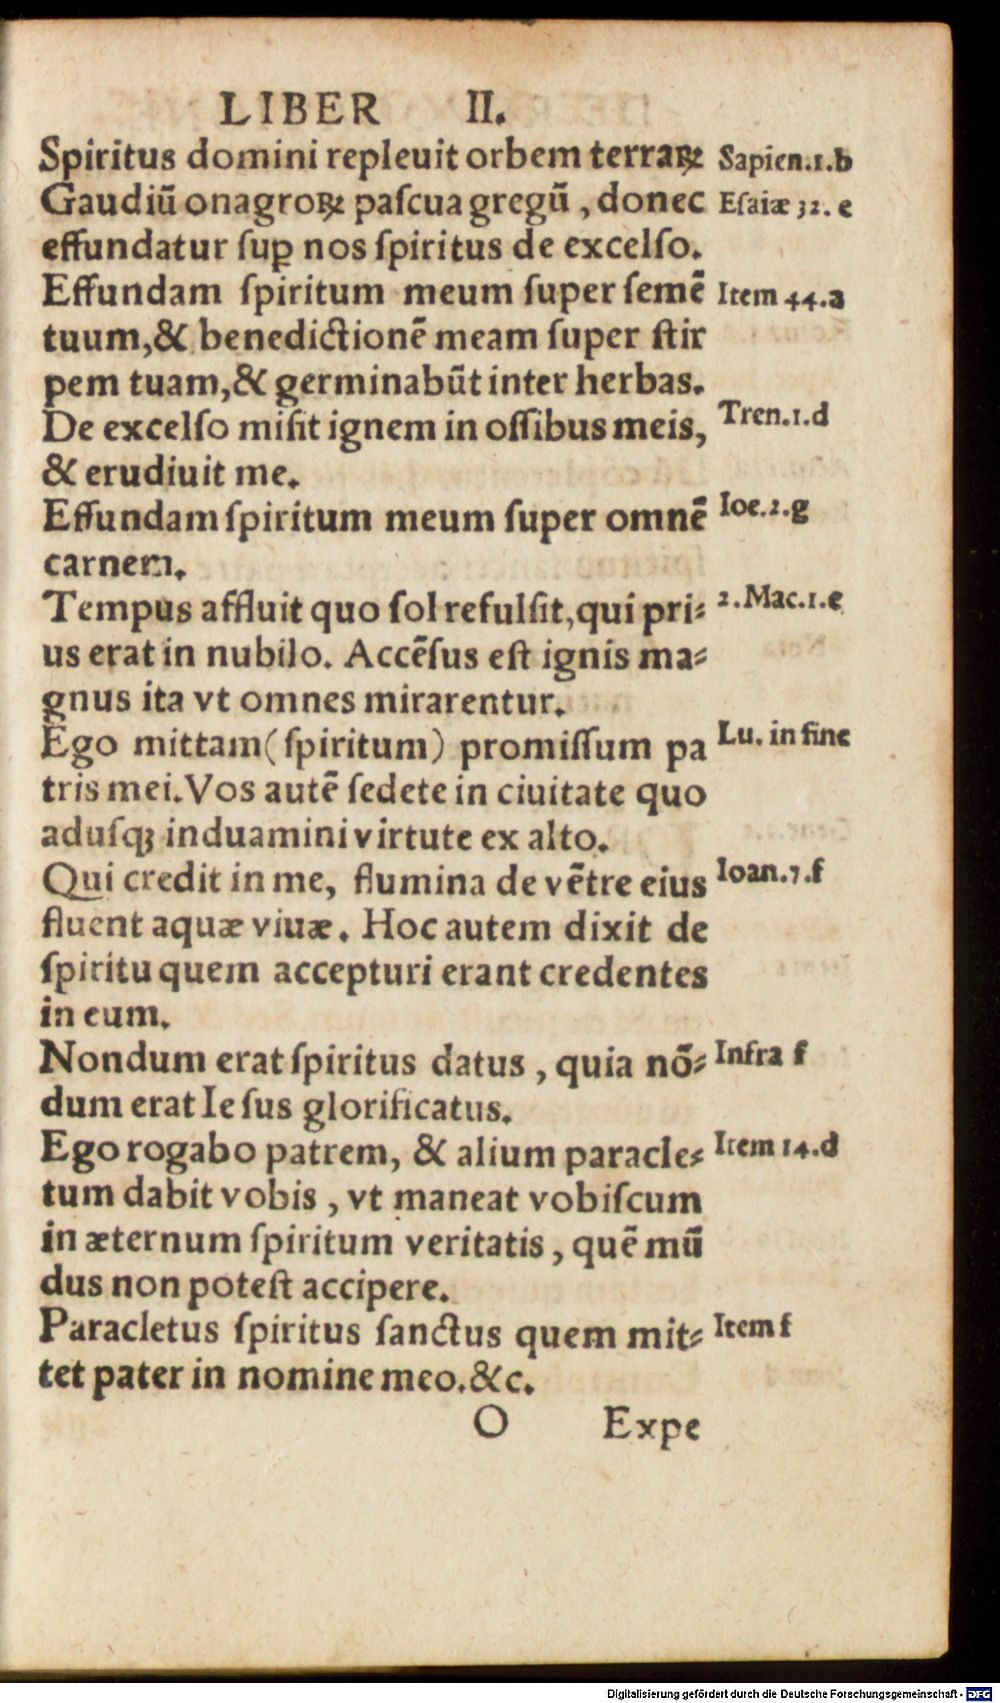 LIBER II.
Spiritus domini repleuit orbem terraꝝ Sapien.1.b
Gaudiũ onagroꝝ paſcua gregũ, donec Eſaiæ 32. e
effundatur ſuꝑ nos ſpiritus de excelſo.
Effundam ſpiritum meum ſuper ſemẽ Item 44.a
tuum,& benedictionẽ meam ſuper ſtir
pem tuam,& germinabũt inter herbas.
De excelſo miſit ignem in oſſibus meis, Tren.1.d
& erudiuit me.
Effundam ſpiritum meum ſuper omnẽ Ioe.2.g
carnem.
Tempus affluit quo ſol refulſit,qui pri⸗ 2.Mac.1.e
us erat in nubilo. Accẽſus eſt ignis ma⸗
gnus ita vt omnes mirarentur.
Ego mittam(ſpiritum) promiſſum pa Lu. in fine
tris mei.Vos autẽ ſedete in ciuitate quo
aduſq; induamini virtute ex alto.
Qui credit in me, flumina de vẽtre eius Ioan.7.f
fluent aquæ viuæ. Hoc autem dixit de
ſpiritu quem accepturi erant credentes
in eum.
Nondum erat ſpiritus datus, quia nõ⸗ Infra f
dum erat Ieſus glorificatus.
Ego rogabo patrem, & alium paracle⸗ Item 14.d
tum dabit vobis, vt maneat vobiſcum
in æternum ſpiritum veritatis, quẽ mũ
dus non poteſt accipere.
Paracletus ſpiritus ſanctus quem mit⸗ Item f
tet pater in nomine meo.&c.
O Expe
Digitalisierung gefördert durch die Deutsche Forschungsgemeinschaft - DFG